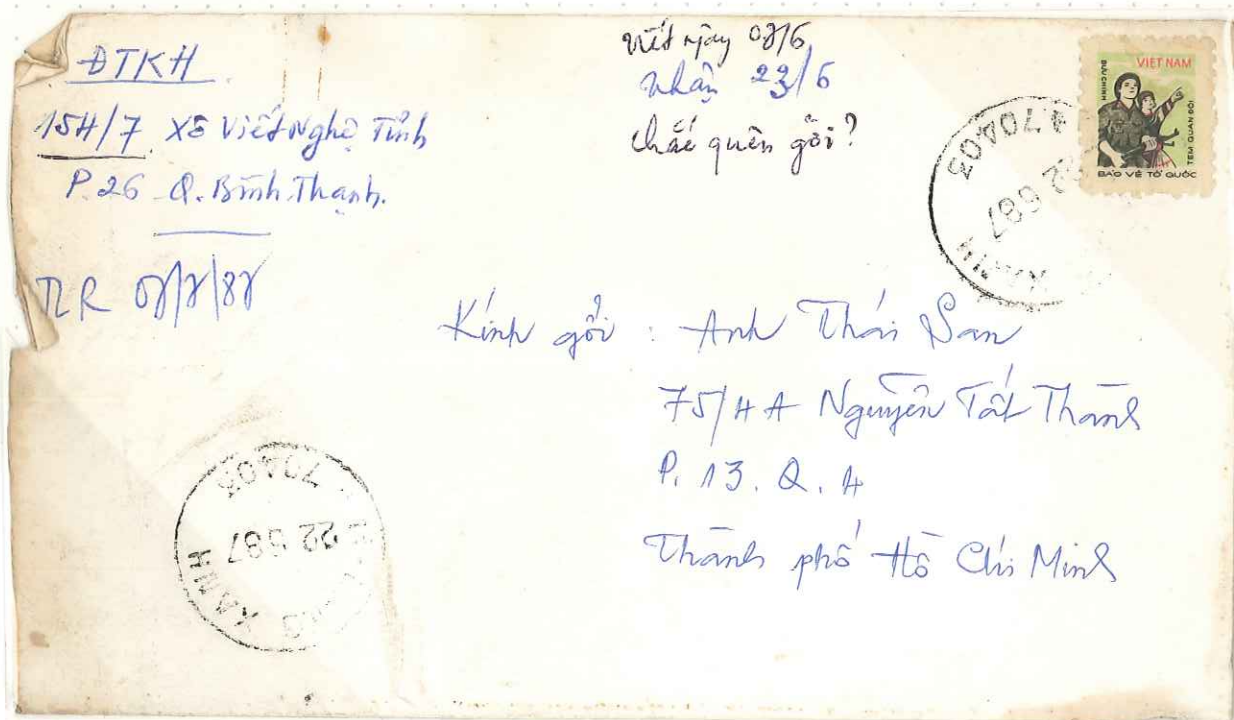 ĐTKH
154/7 Xô Viết Nghệ Tĩnh
P.26 Q. Bình Thạnh.
TLR 08/7/87
Viết ngày 08/6
nhận 23/6
chắc quên gởi?
VIET NAM
BƯU CHÍNH
TEM QUÂN ĐỘI
BẢO VỆ TỔ QUỐC
70403
22 687
XANH
Kính gởi : Anh Thái San
75/4A Nguyễn Tất Thành
P. 13. Q. 4
Thành phố Hồ Chí Minh
70403
22 687
XANH